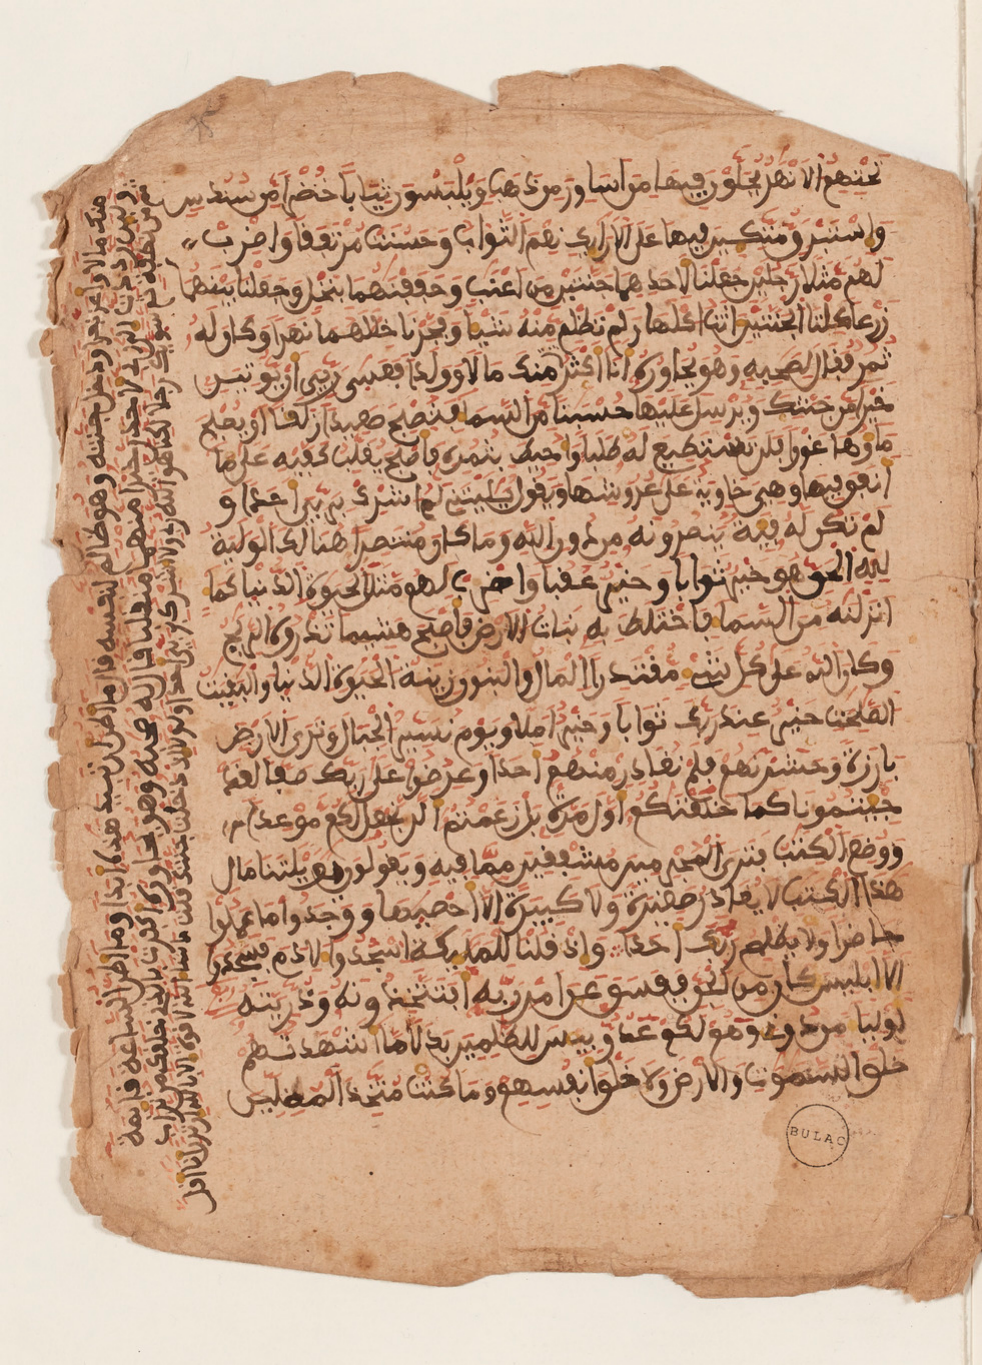 تحتهم الانهر يحلون فيها من اساور من ذهب ويلبسون ثيابا خضرا من سندس
واستبرق متكين فيها على الارايك نعم الثواب وحسنت مرتفقا واضرب
لهم مثلا رجلين جعلنا لاحدهما جنتين من اعنب وحففنهما بنخل وجعلنا بينهما
زرعا كلتا الجنتين اتت اكلها ولم تظلم منه شيا وفجرنا خللهما نهرا وكان له
ثمر فقال لصحبه وهو يحاوره انا اكثر منك مالا وولدا فعسى ربي ان يوتين
خيرا من جنتك ويرسل عليها حسبنا من السما فتصبح صعيدا زلقا او يصبح
ماوها غورا فلن تستطيع له طلبا واحيط بثمره فاصبح يقلب كفيه على ما
انفق فيها وهي خاوية على عروشها ويقول يليتني لم اشرك بربي احدا و
لم تكن له فية ينصرونه من دون الله وما كان منتصرا هنالك الولية
لله الحق هو خير ثوابا وخير عقبا واضرب لهم مثل الحيوة الدنيا كما
انزلنه من السما فاختلط به نبات الارض فاصبح هشيما تذروه الريح
وكان الله على كل شي مقتدرا المال والبنون زينة الحيوة الدنيا والبقيت
الصلحت خير عند ربك ثوابا وخير املا ويوم نسير الجبال وترى الارض
بارزة وحشرنهم فلم نغادر منهم احدا وعرضوا على ربك صفا لقد
جيتمونا كما خلقنكم اول مرة بل زعمتم الن نجعل لكم موعدا
ووضع الكتب فترى المجرمين مشفقين مما فيه ويقولون يويلتنا مال
هذا الكتب لا يغادر صغيرة ولا كبيرة الا احصيها ووجدوا ما عملوا
حاضرا ولا يظلم ربك احدا واذ قلنا للمليكة اسجدوا لادم فسجدوا
الا ابليس كان من الجن ففسق عن امر ربه افتتخذونه وذريته
اوليا من دوني وهم لكم عدو بيس للظلمين بدلا ما اشهدتهم
خلق السموت والارض ولا خلق انفسهم وما كنت متخذ المضلين
منك مالا واعز نفرا ودخل جنته وهو ظالم لنفسه قال ما اظن ان تبيد هذه ابدا وما اظن الساعة قايمة
ولين رددت الى ربي لاجدن خيرا منهما منقلبا قال له صحبه وهو يحاوره اكفرت بالذي خلقك من تراب
ثم من نطفة ثم سويك رجلا لكنا هو الله ربي ولا اشرك بربي احدا ولولا اذ دخلت جنتك قلت ما شا الله لا قوة الا بالله ان ترن انا اقل
BULAC